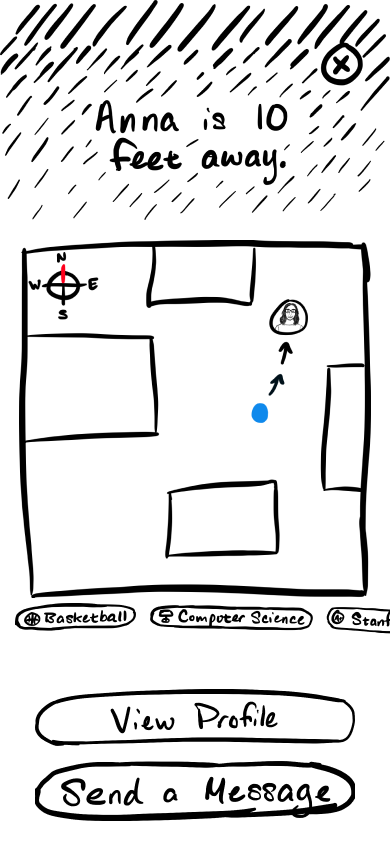 Anna is 10
feet away.
N
W E
S
Basketball Computer Science Stanf
View Profile
Send a Message